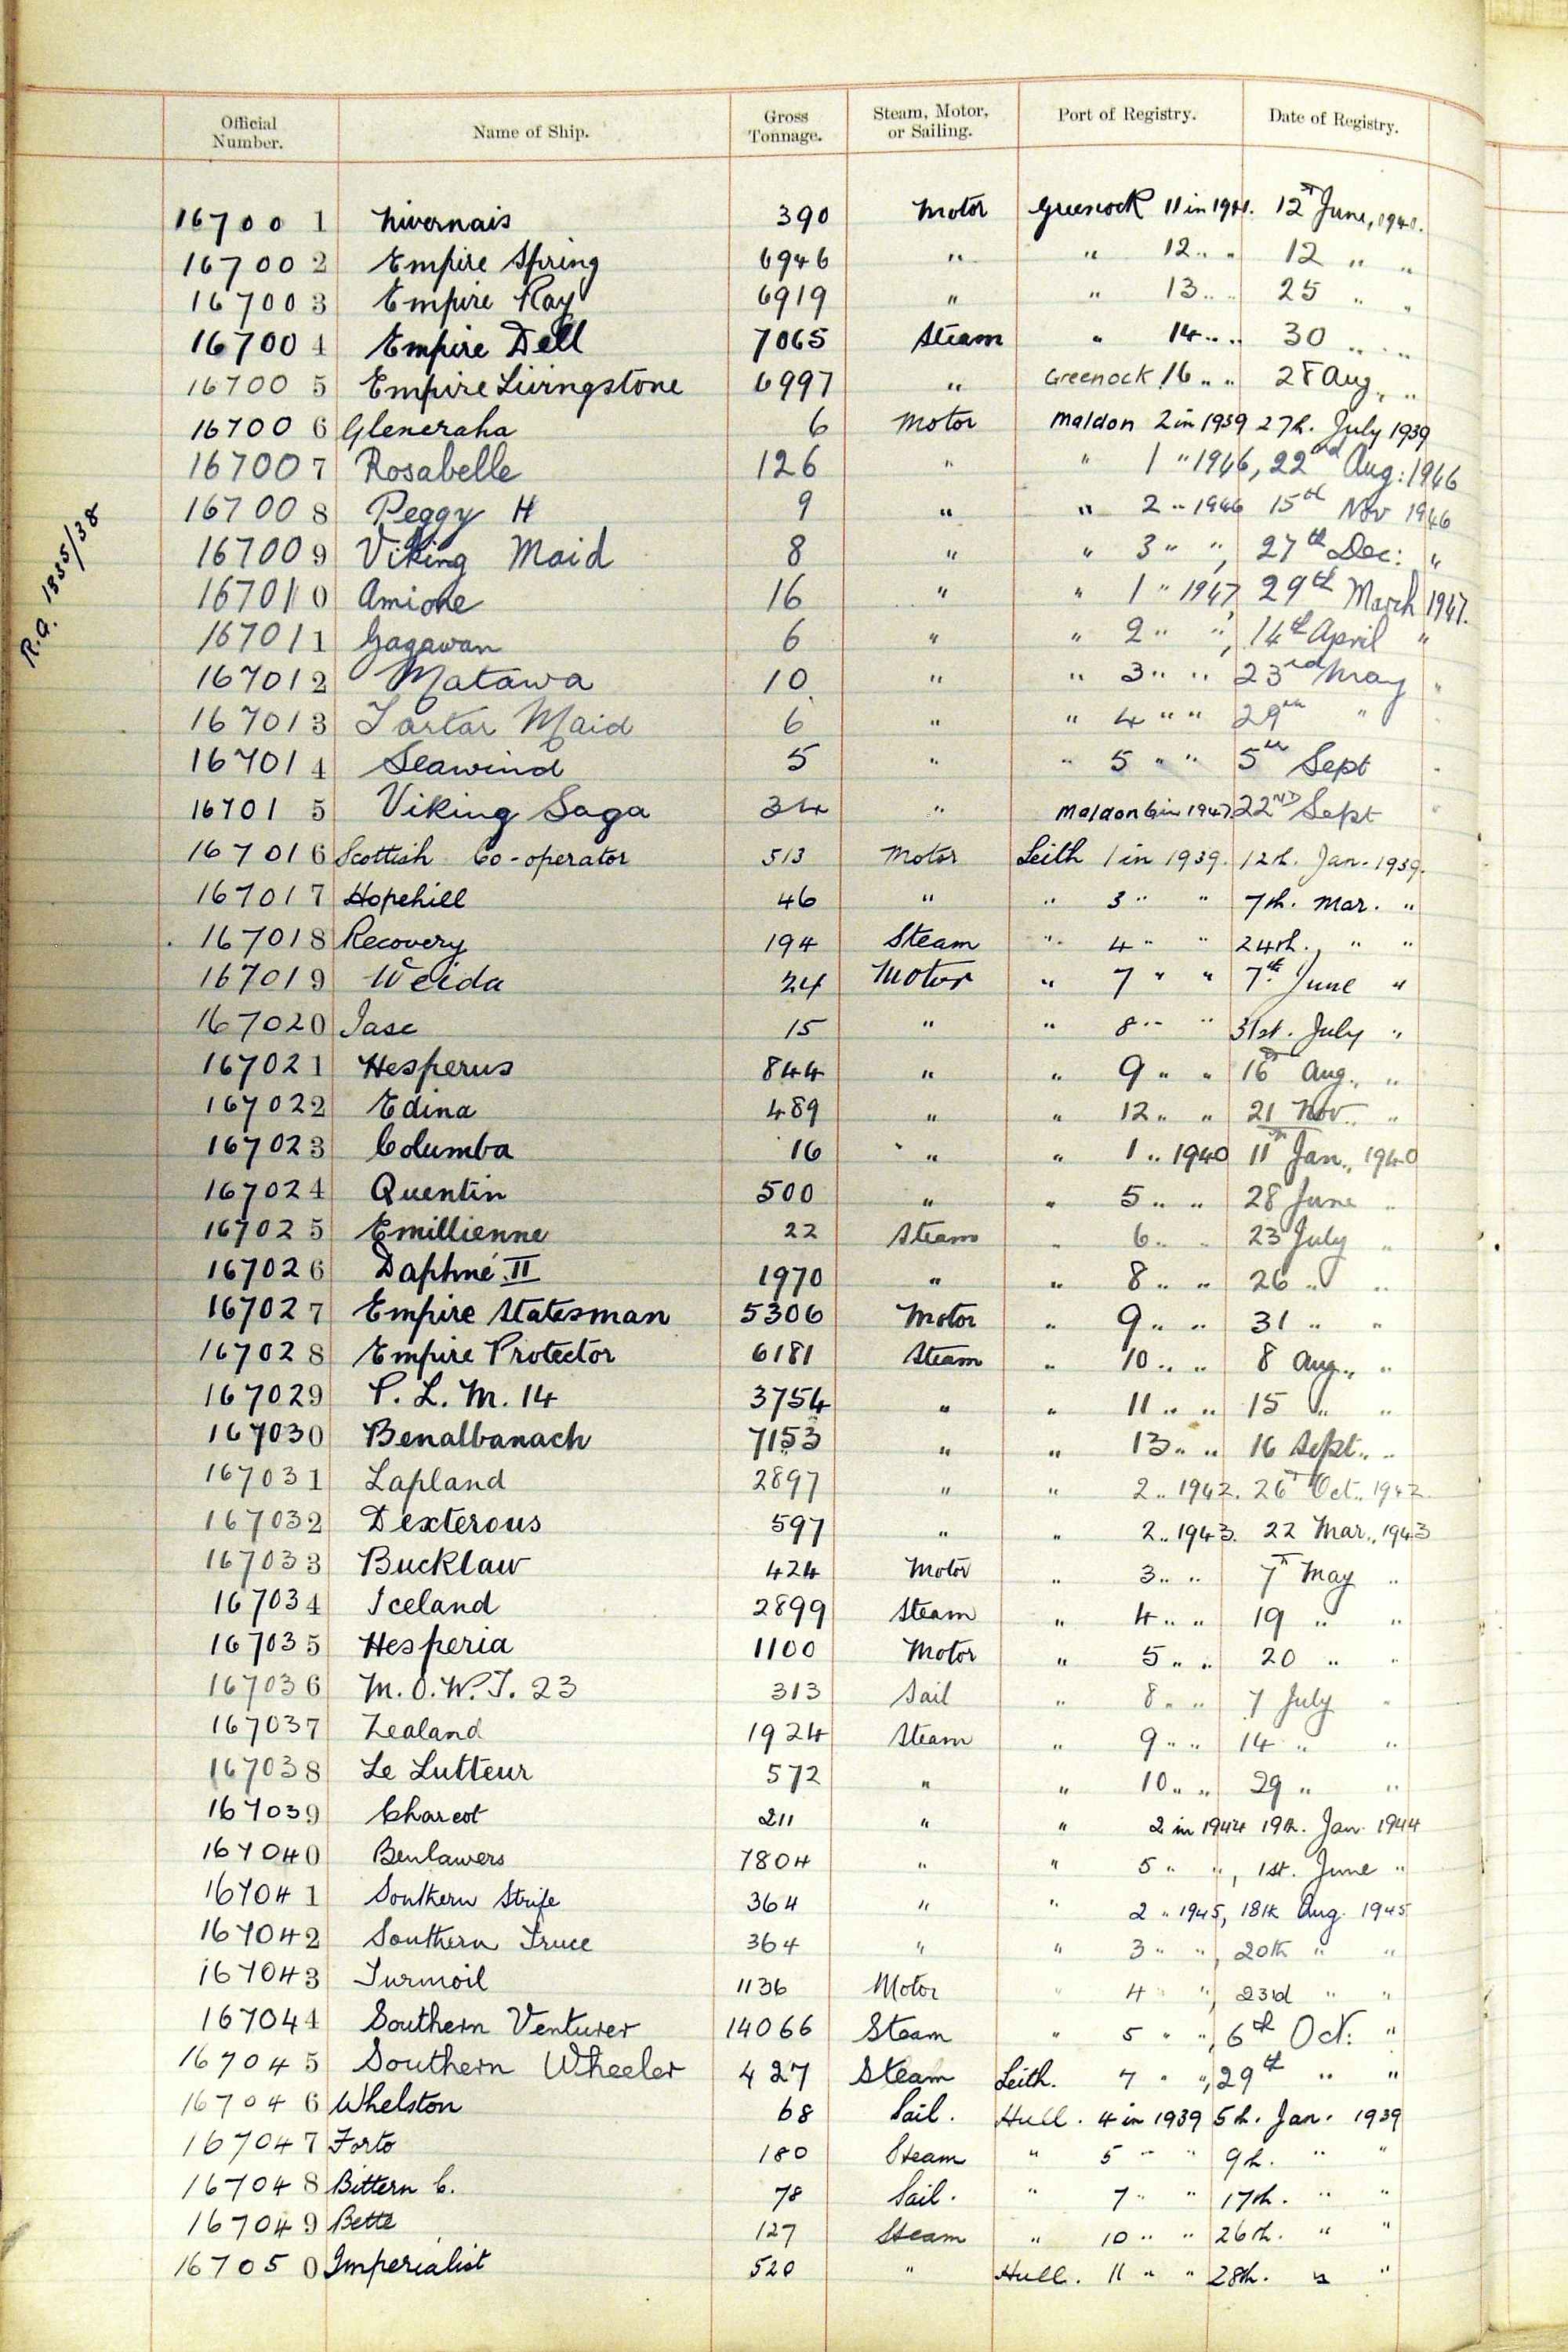 Official Number. Name of Ship. Gross Tonnage. Steam, Motor, or Sailing. Port of Registry. Date of Registry.
R.G. 1335/38
167001 Nivernais 390 Motor Greenock 11 in 1941. 12th June, 1941.
167002 Empire Spring 6946 " " 12 " " 12 " "
167003 Empire Ray 6919 " " 13 " " 25 " "
167004 Empire Dell 7065 Steam " 14 " " 30 " "
167005 Empire Livingstone 6997 " Greenock 16 " " 28 Aug. "
167006 Gleneraha 6 Motor Maldon 2 in 1939 27th. July 1939
167007 Rosabelle 126 " " 1 " 1946, 22nd Aug: 1946
167008 Peggy H 9 " " 2 " 1946 15th Nov 1946
167009 Viking Maid 8 " " 3 " ", 27th Dec: "
167010 Amione 16 " " 1 " 1947, 29th March 1947.
167011 Gagawan 6 " " 2 " ", 14th April "
167012 Matawa 10 " " 3 " " 23rd May "
167013 Tartar Maid 6 " " 4 " " 29th " "
167014 Seawind 5 " " 5 " " 5th Sept "
167015 Viking Saga 34 " Maldon 6 in 1947 22ND Sept "
167016 Scottish Co-operator 513 Motor Leith 1 in 1939. 12th. Jan. 1939.
167017 Hopehill 46 " " 3 " " 7th. Mar. "
167018 Recovery 194 Steam " 4 " " 24th. " "
167019 Weida 24 Motor " 7 " " 7th June "
167020 Jase 15 " " 8 " " 31st. July "
167021 Hesperus 844 " " 9 " " 16th Aug., "
167022 Edina 489 " " 12 " " 21 Nov. "
167023 Columba 16 " " 1 " 1940 11th Jan., 1940
167024 Quentin 500 " " 5 " " 28 June "
167025 Emillienne 22 Steam " 6 " " 23 July "
167026 Daphné II 1970 " " 8 " " 26 " "
167027 Empire Statesman 5306 Motor " 9 " " 31 " "
167028 Empire Protector 6181 Steam " 10 " " 8 Aug., "
167029 P. L. M. 14 3754 " " 11 " " 15 " "
167030 Benalbanach 7153 " " 13 " " 16 Sept. "
167031 Lapland 2897 " " 2 " 1942. 26th Oct., 1942.
167032 Dexterous 597 " " 2 " 1943. 22 Mar., 1943
167033 Bucklaw 424 Motor " 3 " " 7th May "
167034 Iceland 2899 Steam " 4 " " 19 " "
167035 Hesperia 1100 Motor " 5 " " 20 " "
167036 M.O.W.T. 23 313 Sail " 8 " " 7 July "
167037 Zealand 1924 Steam " 9 " " 14 " "
167038 Le Lutteur 572 " " 10 " " 29 " "
167039 Charcot 211 " " 2 in 1944 19th. Jan. 1944
167040 Benlawers 7804 " " 5 " ", 1st. June "
167041 Southern Strife 364 " " 2 " 1945, 18th Aug. 1945
167042 Southern Truce 364 " " 3 " ", 20th " "
167043 Turmoil 1136 Motor " 4 " ", 23rd " "
167044 Southern Venturer 14066 Steam " 5 " ", 6th Oct: "
167045 Southern Wheeler 427 Steam Leith. 7 " ", 29th " "
167046 Whelston 68 Sail. Hull. 4 in 1939 5th. Jan. 1939
167047 Forto 180 Steam " 5 " " 9th. " "
167048 Bittern C. 78 Sail. " 7 " " 17th. " "
167049 Bette 127 Steam " 10 " " 26th. " "
167050 Imperialist 520 " Hull. 11 " " 28th. " "